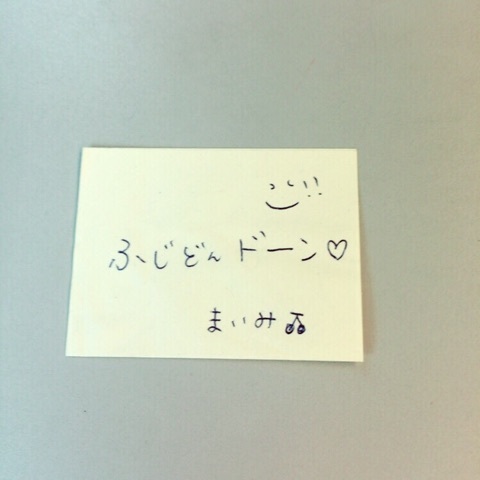 !!
ふじどんドーン♡
まいみ